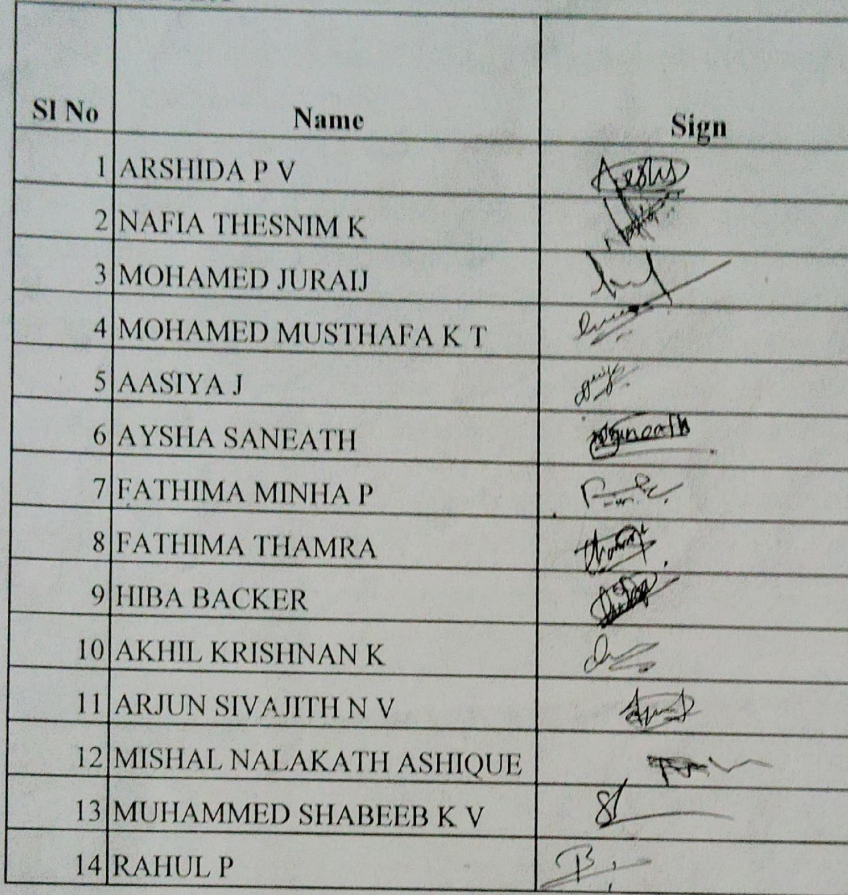 Sl No Name Sign
1 ARSHIDA P V
2 NAFIA THESNIM K
3 MOHAMED JURAIJ
4 MOHAMED MUSTHAFA K T
5 AASIYA J
6 AYSHA SANEATH
7 FATHIMA MINHA P
8 FATHIMA THAMRA
9 HIBA BACKER
10 AKHIL KRISHNAN K
11 ARJUN SIVAJITH N V
12 MISHAL NALAKATH ASHIQUE
13 MUHAMMED SHABEEB K V
14 RAHUL P